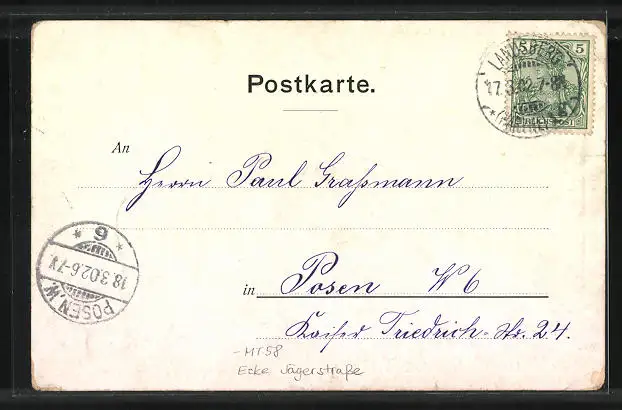 Postkarte.
LANDSBERG
17.3.02.7-8
5
REICHSPOST
An
Herrn Paul Graßmann
POSEN.W.
18.3.02.6-7V.
* 9 *
in Posen W 6
Kaiser Friedrich-Str. 24.
-MT58
Ecke Jägerstraße